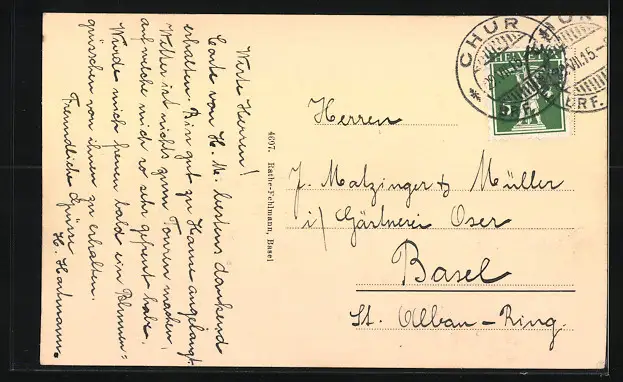 Werte Herren!
Carte von H. M. bestens dankend
erhalten. Bin gut zu Hause angelangt.
Wetter ist nichts zum Touren machen,
auf welche mich so sehr gefreut habe.
Würde mich freuen bald ein Blumen=
grüschen von ihnen zu erhalten.
Freundliche Grüsse
H. Hartmann.
4697. Rathe-Fehlmann, Basel
CHUR
BRF.
CHUR
VII.15.-
BRF.
HELVETIA
5
Herren
J. Matzinger & Müller
i/ Gärtnerei Oser
Basel
St. Alban-Ring.